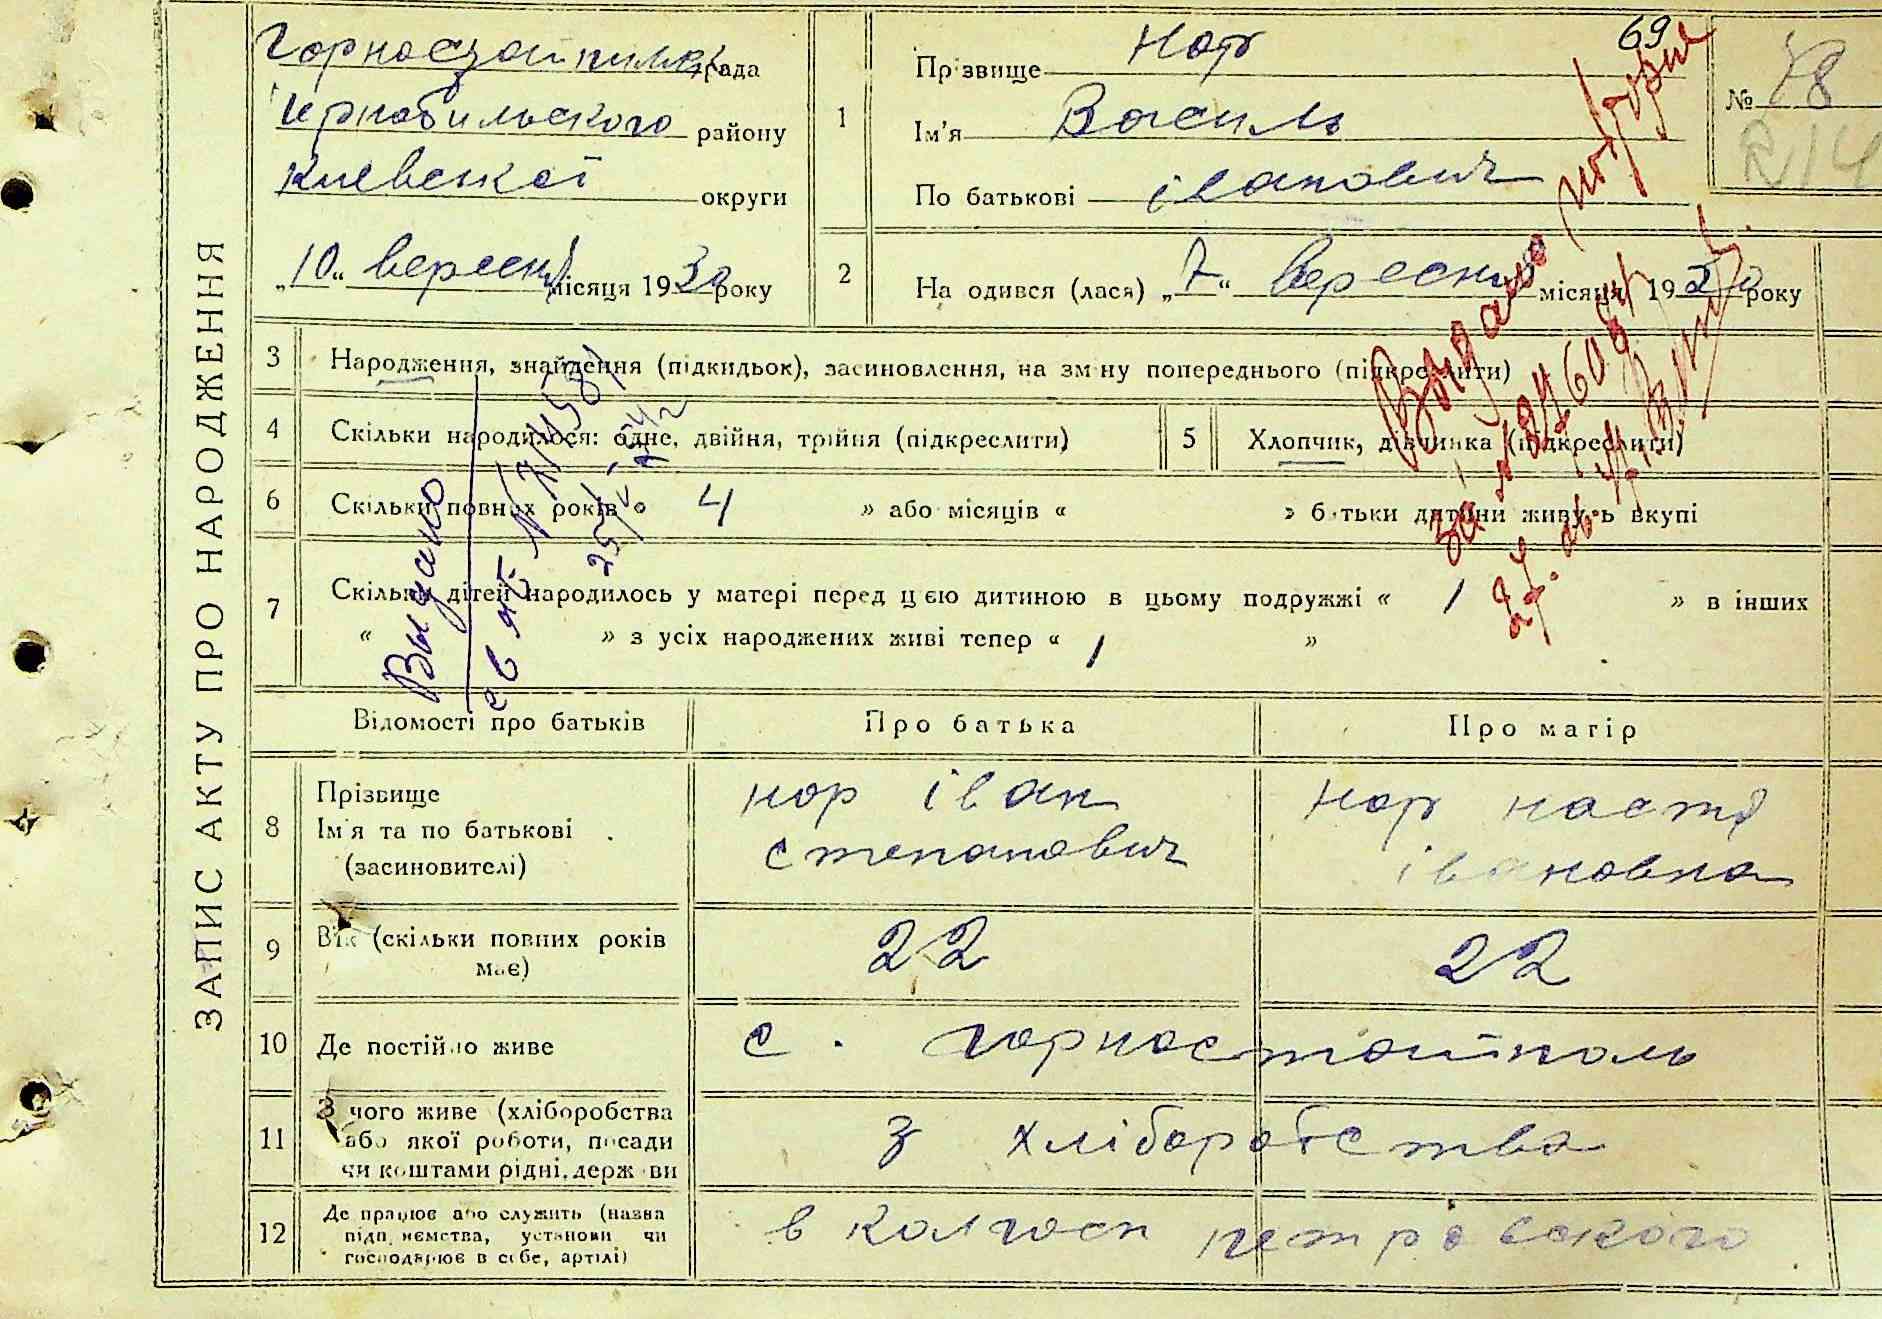 ЗАПИС АКТУ ПРО НАРОДЖЕННЯ
69
рада
Чорнобильского району
Киевскої округи
„10" вересня місяця 1930 року
1
Прізвище Нор
Ім'я Василь
По батькові іванович
№ 78
2
Народився (лася) „7" вересня місяця 1930 року
3 Народження, знайдення (підкидьок), засиновлення, на зміну попереднього (підкреслити)
4 Скільки народилося: одне, двійня, трійня (підкреслити)
5 Хлопчик, дівчинка (підкреслити)
6 Скільки повних років « 4 » або місяців « » батьки дитини живуть вкупі
7 Скільки дітей народилось у матері перед цією дитиною в цьому подружжі « 1 » в інших
« » з усіх народжених живі тепер « 1 »
Выдано
Выдано повторне
Відомості про батьків
Про батька
Про матір
8
Прізвище
Ім'я та по батькові
(засиновителі)
нор іван
степанович
нор настя
івановна
9
Вік (скільки повних років
має)
22
22
10 Де постійно живе
с. горностайполь
11
З чого живе (хліборобства
або якої роботи, посади
чи коштами рідні, держави
з хліборобства
12
Де працює або служить (назва
підприємства, установи чи
господарює в себе, артілі)
в колгосп петровского